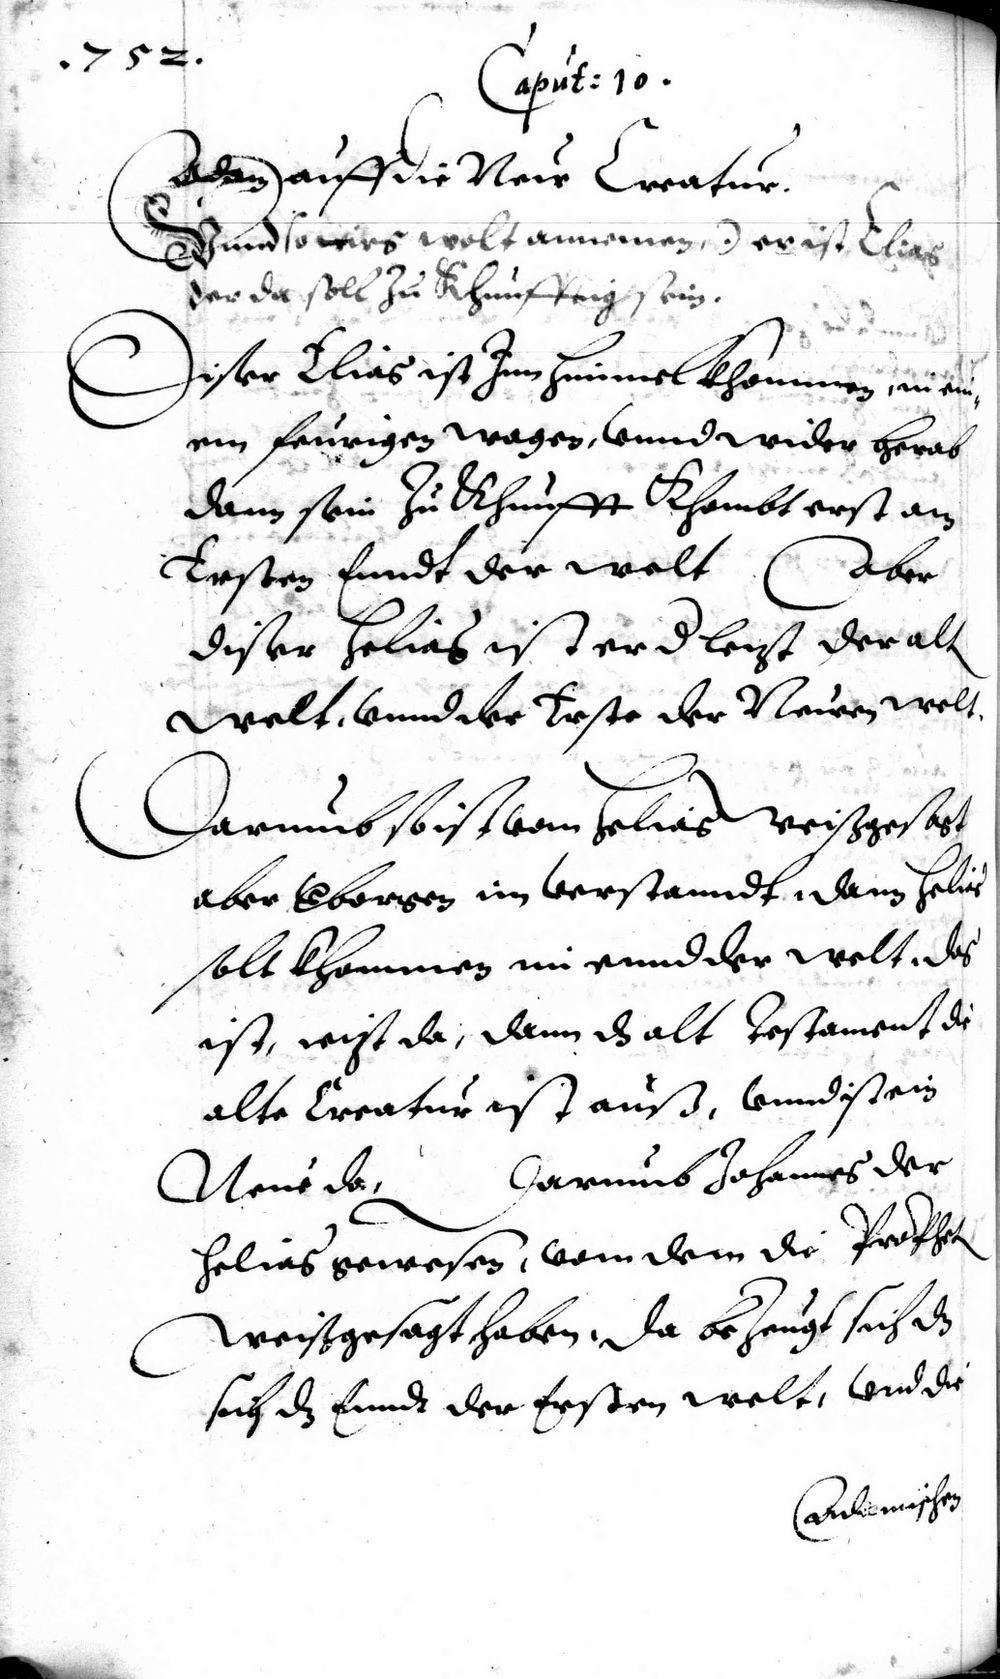 .752.
Caput: 10.
Adam auff die Neue Creatur.
Vnnd so irs wolt annemen, :) er ist Elias
der da soll zu Khunfftig sein.
Diser Elias ist Inn himmel khommen, in ein,
em feurigen wagen, vnnd wider herab
dann sein Zu Khunfft Khombt erst am
Ersten Enndt der welt Aber
diser Helias ist er d letzt der alt
welt, vnnd der Erste der Neuen welt.
Darumb so ist vom Helias weissgesagt
aber Verborgen im verstanndt, dann Helias
solt khommen in ennd der welt, das
ist, ietzt da, dann dz alt Testament die
alte Creatur ist auß, vnnd ist ein
Neue da, Darumb Johannes der
Helias gewesen, von dem die Prophet
weissgesagt haben, da bezeugt sich dz
sich dz Ennde der Ersten welt, vnd die
Adamischen